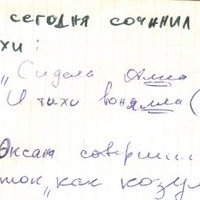 сегодня сочинил
хи:
„Сидела Алла
И тихо воняла (
Оксан соверши
ток, как козул